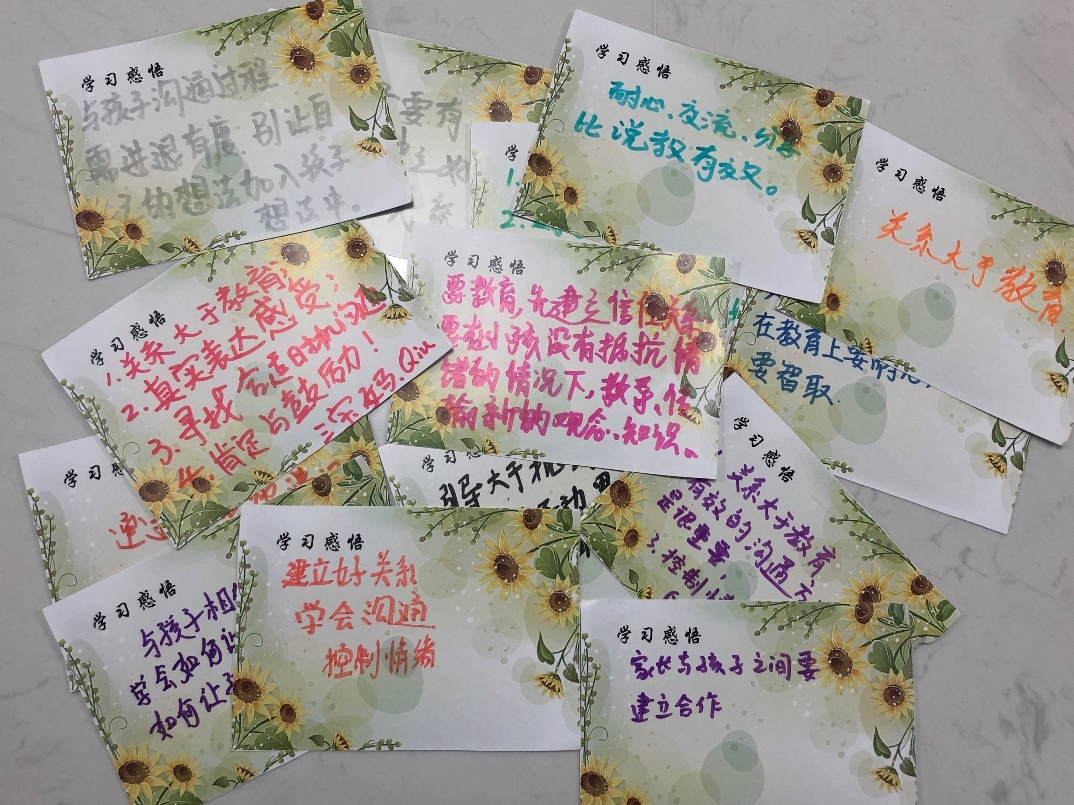 学习感悟
与孩子沟通过程
要进退有度 别让自
的想法加入孩子
想法中。
要有
学习感悟
耐心、交流、分享
比说教有效。
学
1.
2.
学习感悟
关系大于教育
学习感悟
1.关系大于教育;
2.真实表达感受;
3.寻找合适时机沟通
4.肯定与鼓励!
学习感悟
要教育,先建立信任关系
要在小孩没有抵抗情
绪的情况下,教导、传
输新的观念、知识。
在教育上要
要智取
学习感
学习感
引导大于
学习感悟
关系大于教育
有效的沟通
是很重要,
3.控制
学习感悟
与孩子相
学会如何
如何让
学习感悟
建立好关系
学会沟通
控制情绪
学习感悟
家长与孩子之间要
建立合作